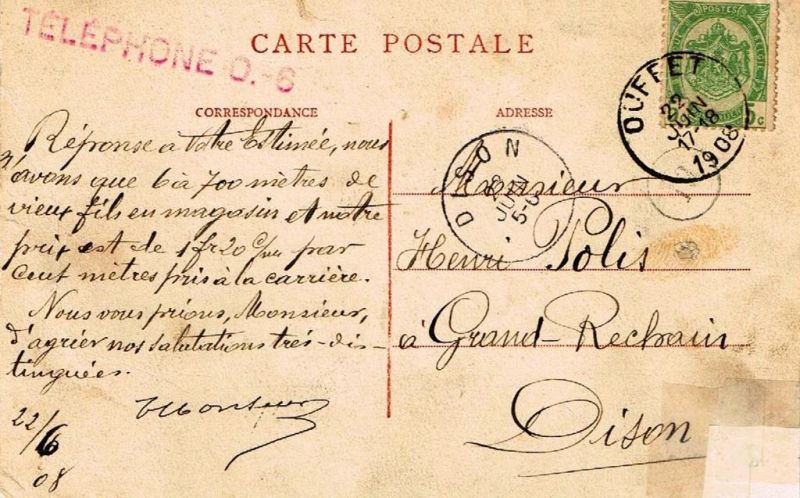 TÉLÉPHONE O.-6
CARTE POSTALE
CORRESPONDANCE
ADRESSE
POSTES
OUFFET
22
JUIN
17-18
1908
DISON
JUIN
Réponse à Votre Estimée, nous
n'avons que 6 à 700 mètres de
vieux fils en magasin et notre
prix est de 1 fr 20 par
cent mètres pris à la carrière.
Nous vous prions, Monsieur,
d'agréer nos salutations très-dis-
tinguées.
22/6
08
Monsieur
Henri Polis
à Grand-Rechain
Dison